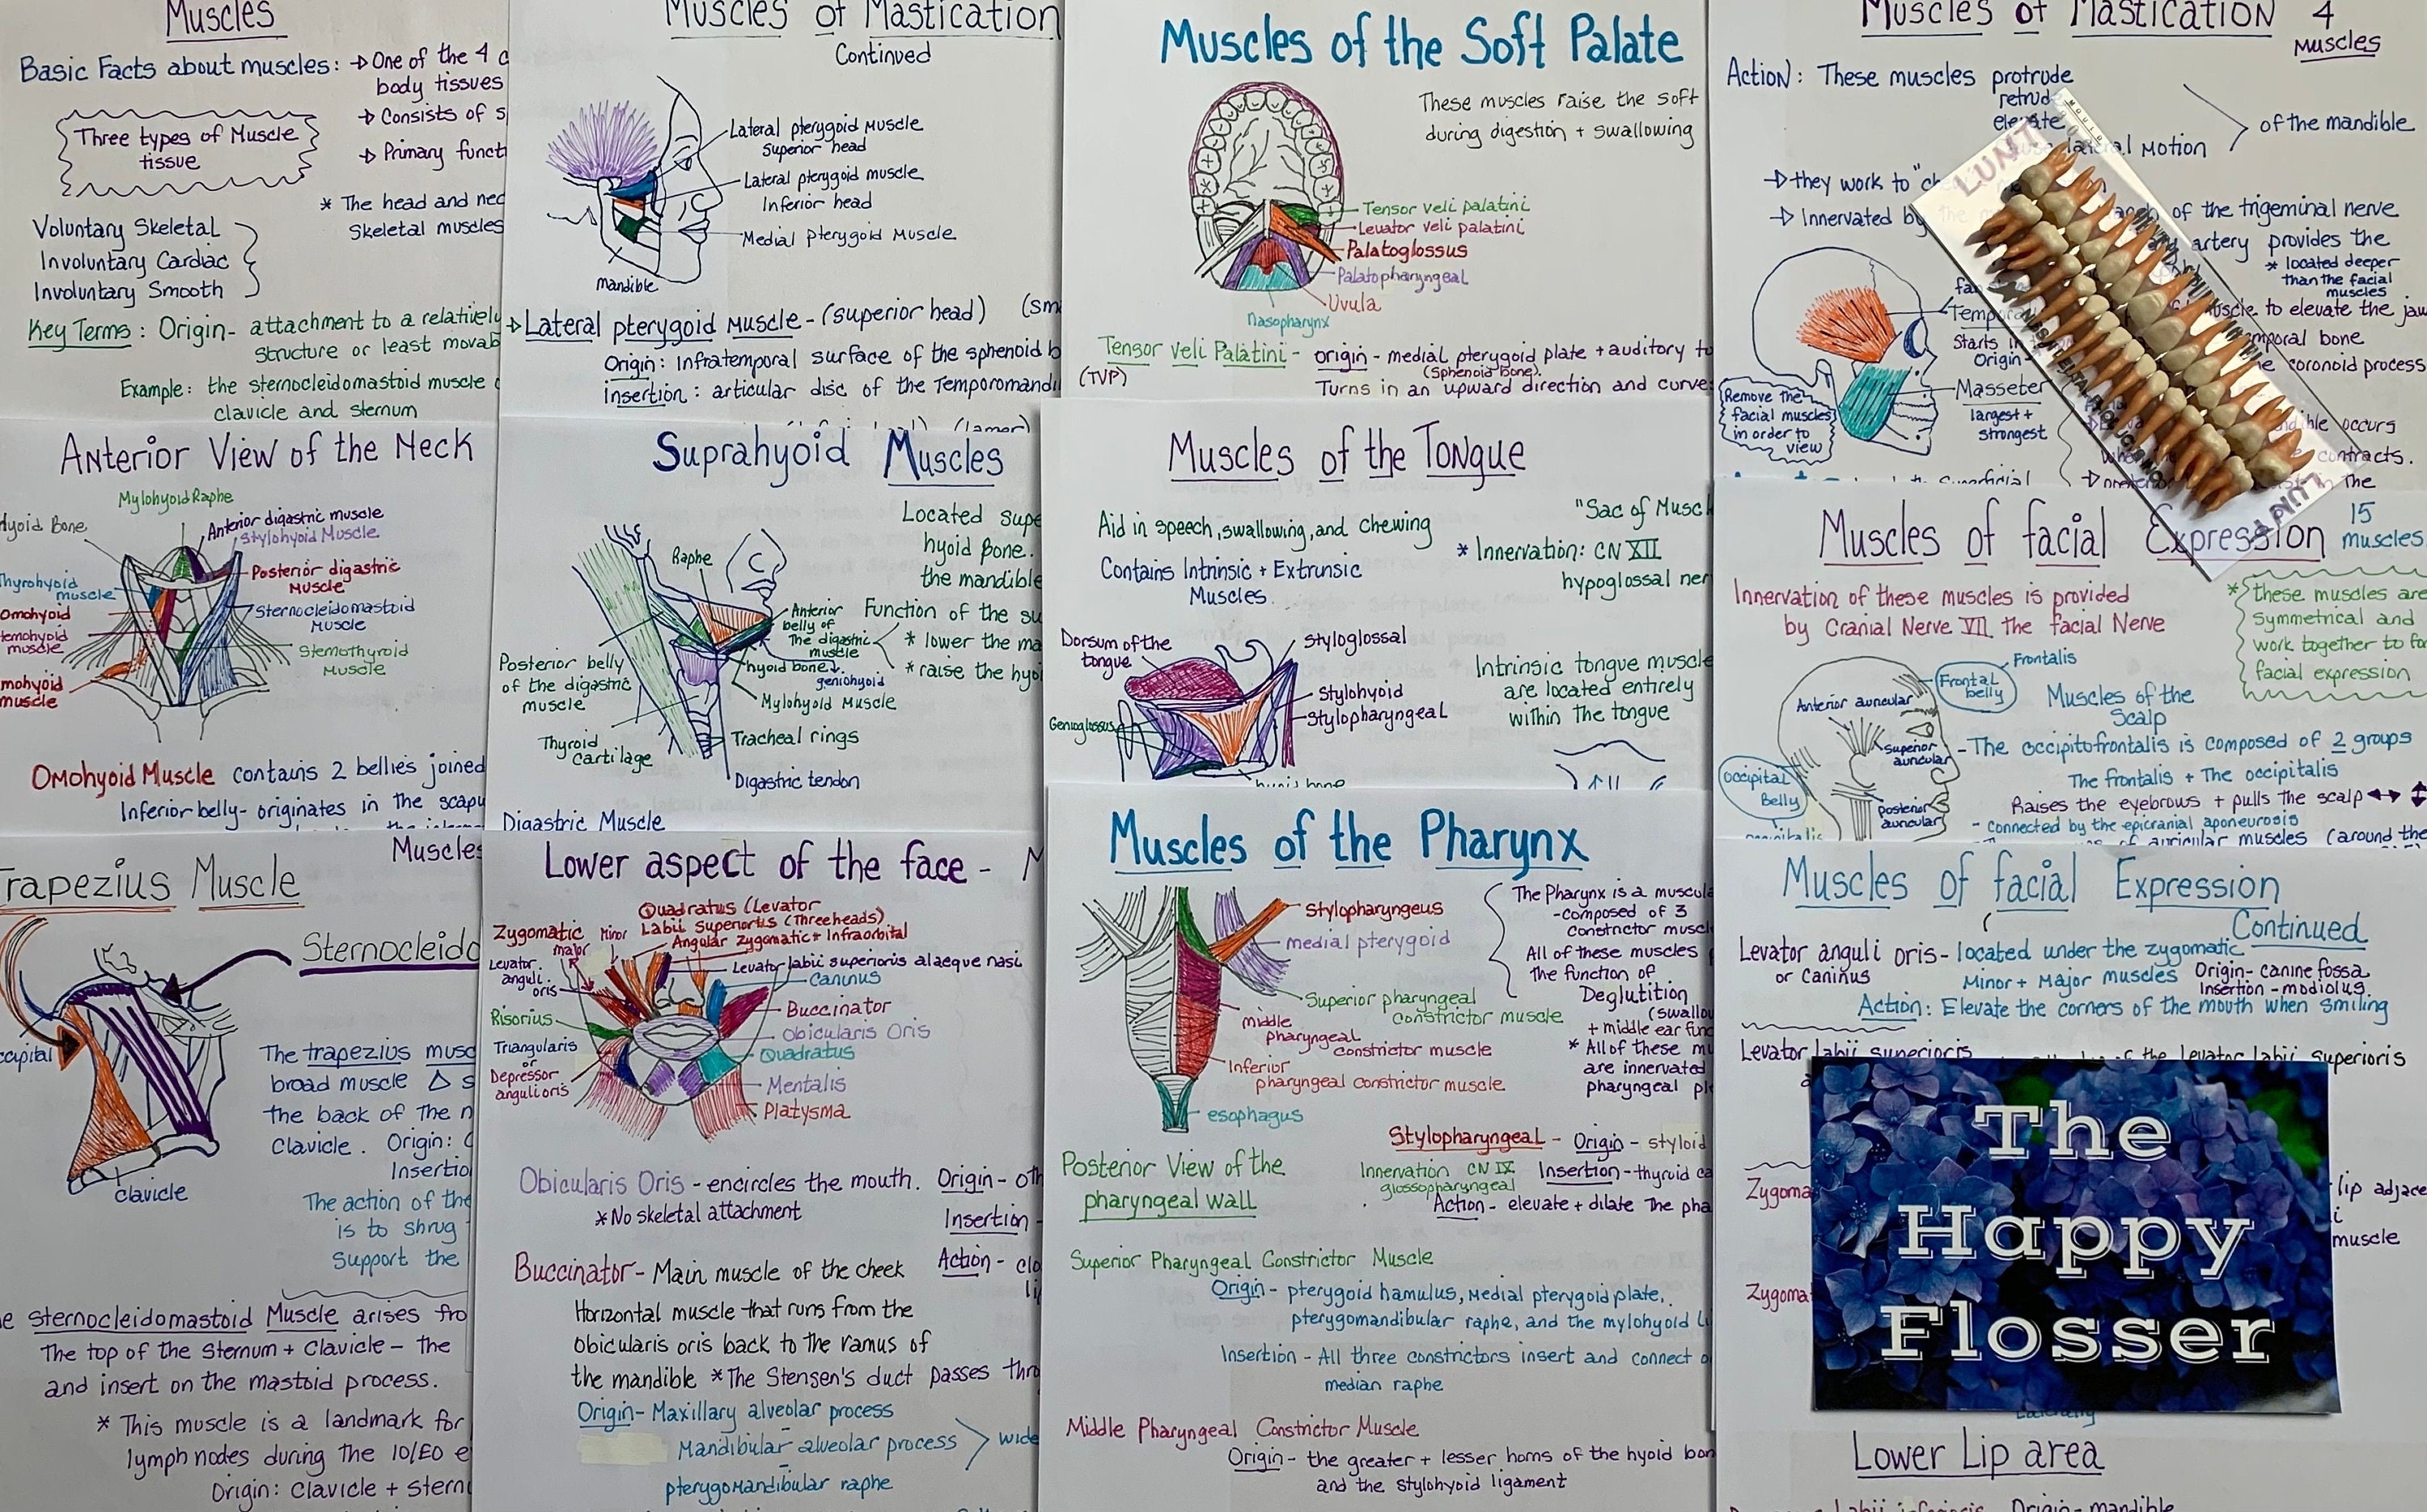 Muscles
Basic Facts about muscles: → One of the 4
body tissues
→ Consists of
→ Primary
Three types of Muscle
tissue
* The head and
Skeletal muscles
Voluntary Skeletal
Involuntary Cardiac
Involuntary Smooth
Key Terms: Origin- attachment to a relatively
structure or least
Example: the sternocleidomastoid muscle
clavicle and sternum
Muscles of Mastication
Continued
Lateral pterygoid muscle
Superior head
Lateral pterygoid muscle
Inferior head
Medial Pterygoid Muscle
mandible
→ Lateral pterygoid muscle - (superior head)
Origin: Infratemporal surface of the sphenoid
insertion: articular disc of the
Muscles of the Soft Palate
These muscles raise the soft
during digestion + swallowing
Tensor veli palatini
Levator veli palatini
Palatoglossus
Palatopharyngeal
Uvula
Nasopharynx
Tensor Veli Palatini - origin - medial pterygoid plate + auditory
(TVP) (Sphenoid bone).
Turns in an upward direction and
Muscles of Mastication 4
Muscles
Action: These muscles protrude
elevate
of the mandible
Motion
→ they work to
→ Innervated
of the trigeminal nerve
artery provides the
* located deeper
than the facial
muscles
muscle to elevate the
bone
coronoid process
Starts
Origin-
Masseter
largest +
strongest
Remove the
facial muscles
in order to
view
occurs
contracts.
the
LUNT
Anterior View of the Neck
Mylohyoid Raphe
Hyoid Bone
Anterior digastric muscle
Stylohyoid Muscle
Thyrohyoid
muscle
Posterior digastric
Muscle
Omohyoid
Sternocleidomastoid
Muscle
muscle
Stemothyroid
Muscle
muscle
Omohyoid Muscle contains 2 bellies joined
Inferior belly- originates in the
Suprahyoid Muscles
Located
hyoid Bone.
the mandible
Raphe
Anterior
belly of
The digastric
muscle
Function of the
* lower the
* raise the
hyoid bone
geniohyoid
Mylohyoid Muscle
Posterior belly
of the digastric
muscle
Thyroid
Cartilage
Tracheal rings
Digastric tendon
Digastric Muscle
Muscles of the Tongue
Aid in speech, swallowing, and chewing
Contains Intrinsic + Extrinsic
Muscles.
"Sac of
* Innervation: CN XII
hypoglossal
Dorsum of the
tongue
Styloglossal
Stylohyoid
Stylopharyngeal
Genioglossus
Intrinsic tongue
are located entirely
within the tongue
Muscles of facial Expression 15
muscles
Innervation of these muscles is provided
by Cranial Nerve VII The facial Nerve
* these muscles are
symmetrical and
work together to
facial expression
Frontalis
Frontal
belly
Anterior auricular
Superior
auricular
Posterior
auricular
Occipital
Belly
Muscles of the
Scalp
- The occipitofrontalis is composed of 2 groups
The frontalis + The occipitalis
Raises the eyebrows + pulls the scalp
- Connected by the epicranial aponeurosis
muscles (around the
Muscles
Trapezius Muscle
clavicle
The trapezius
broad muscle
the back of the
Clavicle. Origin:
The action of the
is to shrug
Support the
sternocleidomastoid Muscle arises
The top of the Sternum + Clavicle - The
and insert on the mastoid process.
* This muscle is a landmark for
lymph nodes during the IO/EO
Origin: Clavicle +
Lower aspect of the face -
Quadratus (Levator
Labii Superioris (Three heads)
Angular Zygomatic + Infraorbital
Zygomatic
major
Minor
Levator
anguli
oris
Levator labii superioris alaeque nasi
Caninus
Buccinator
Obicularis Oris
Quadratus
Mentalis
Platysma
Risorius
Triangularis
or
Depressor
anguli oris
Obicularis Oris - encircles the mouth. Origin-
* No skeletal attachment
Insertion -
Action -
Buccinator- Main muscle of the cheek
Horizontal muscle that runs from the
Obicularis oris back to the ramus of
the mandible * The Stensen's duct passes
Origin- Maxillary alveolar process
Mandibular alveolar process
pterygomandibular raphe
Muscles of the Pharynx
Stylopharyngeus
medial pterygoid
Superior pharyngeal
constrictor muscle
middle
pharyngeal
constrictor muscle
Inferior
pharyngeal constrictor muscle
esophagus
The Pharynx is a
-composed of 3
constrictor
All of these muscles
the function of
Deglutition
+ middle ear
* All of these
are innervated
pharyngeal
Posterior View of the
pharyngeal wall
Stylopharyngeal - Origin - styloid
Innervation CN IX
glossopharyngeal
Insertion - thyroid
Action - elevate + dilate The
Superior Pharyngeal Constrictor Muscle
Origin - pterygoid hamulus, Medial pterygoid plate,
pterygomandibular raphe, and the mylohyoid
Insertion - All three constrictors insert and connect
median raphe
Middle Pharyngeal Constrictor Muscle
Origin - the greater + lesser horns of the hyoid
and the stylohyoid ligament
Muscles of facial Expression
Continued
Levator anguli oris - located under the zygomatic
or Caninus Minor + Major muscles
Origin- canine fossa
Insertion - modiolus.
Action: Elevate the corners of the mouth when smiling
Levator labii superioris
the Levator labii superioris
lip
muscle
The
Happy
Flosser
Lower Lip area
Origin- mandible